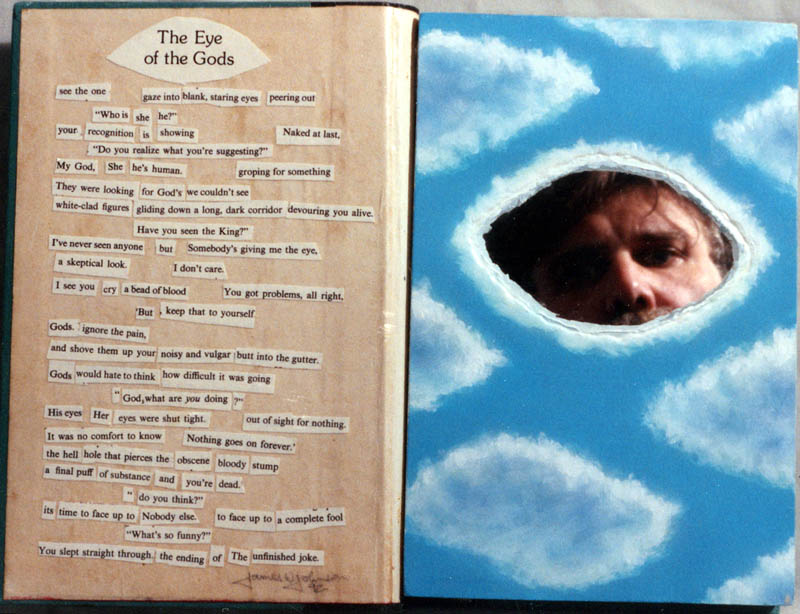 The Eye
of the Gods
see the one gaze into blank, staring eyes peering out
"Who is she he?"
your recognition is showing Naked at last,
"Do you realize what you're suggesting?"
My God, She he's human. groping for something
They were looking for God's we couldn't see
white-clad figures gliding down a long, dark corridor devouring you alive.
Have you seen the King?"
I've never seen anyone but Somebody's giving me the eye,
a skeptical look. I don't care.
I see you cry a bead of blood You got problems, all right,
'But , keep that to yourself
Gods. ignore the pain,
and shove them up your noisy and vulgar butt into the gutter.
Gods would hate to think how difficult it was going
" God, what are you doing ?"
His eyes Her eyes were shut tight. out of sight for nothing.
It was no comfort to know Nothing goes on forever.'
the hell hole that pierces the obscene bloody stump
a final puff of substance and you're dead.
" do you think?"
its time to face up to Nobody else. to face up to a complete fool
"What's so funny?"
You slept straight through. the ending of The unfinished joke.